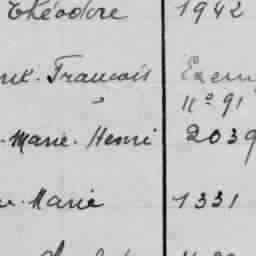 Théodore 1942
François Exem
" N° 91
-Marie-Henri 2039
-Marie 1331